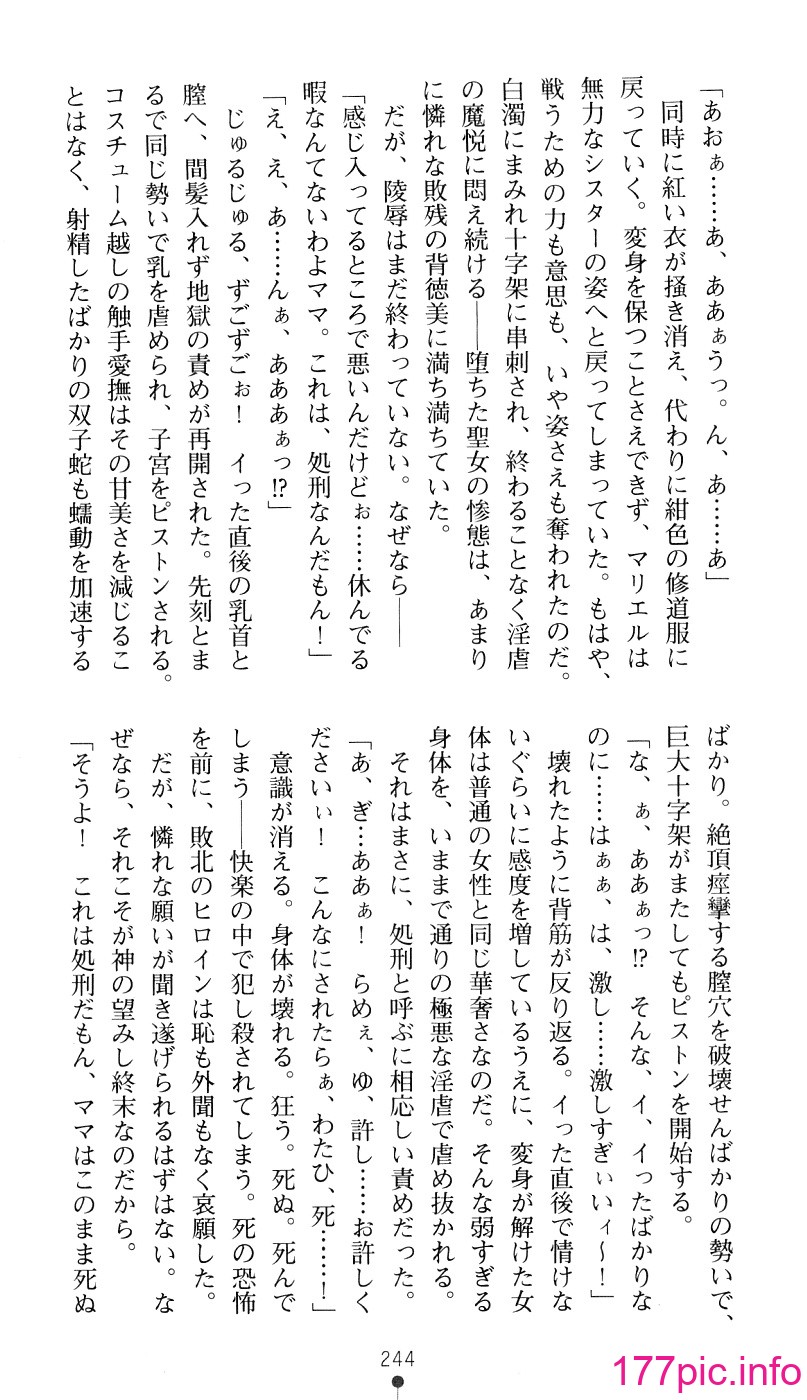 「あおぁ……あ、ああぁうっ。ん、あ……あ」
　同時に紅い衣が掻き消え、代わりに紺色の修道服に
戻っていく。変身を保つことさえできず、マリエルは
無力なシスターの姿へと戻ってしまっていた。もはや、
戦うための力も意思も、いや姿さえも奪われたのだ。
白濁にまみれ十字架に串刺され、終わることなく淫虐
の魔悦に悶え続ける――堕ちた聖女の惨態は、あまり
に憐れな敗残の背徳美に満ち満ちていた。
　だが、陵辱はまだ終わっていない。なぜなら――
「感じ入ってるところで悪いんだけどぉ……休んでる
暇なんてないわよママ。これは、処刑なんだもん！」
「え、え、あ……んぁ、あああぁっ!?」
　じゅるじゅる、ずごずごぉ！　イった直後の乳首と
膣へ、間髪入れず地獄の責めが再開された。先刻とま
るで同じ勢いで乳を虐められ、子宮をピストンされる。
コスチューム越しの触手愛撫はその甘美さを減じるこ
とはなく、射精したばかりの双子蛇も蠕動を加速する
ばかり。絶頂痙攣する膣穴を破壊せんばかりの勢いで、
巨大十字架がまたしてもピストンを開始する。
「な、ぁ、ああぁっ!?　そんな、イ、イったばかりな
のに……はぁぁ、は、激し……激しすぎぃいィ～！」
　壊れたように背筋が反り返る。イった直後で情けな
いぐらいに感度を増しているうえに、変身が解けた女
体は普通の女性と同じ華奢さなのだ。そんな弱すぎる
身体を、いままで通りの極悪な淫虐で虐め抜かれる。
　それはまさに、処刑と呼ぶに相応しい責めだった。
「あ、ぎ…ああぁ！　らめぇ、ゆ、許し……お許しく
ださいぃ！　こんなにされたらぁ、わたひ、死……！」
　意識が消える。身体が壊れる。狂う。死ぬ。死んで
しまう――快楽の中で犯し殺されてしまう。死の恐怖
を前に、敗北のヒロインは恥も外聞もなく哀願した。
　だが、憐れな願いが聞き遂げられるはずはない。な
ぜなら、それこそが神の望みし終末なのだから。
「そうよ！　これは処刑だもん、ママはこのまま死ぬ
244
177pic.info